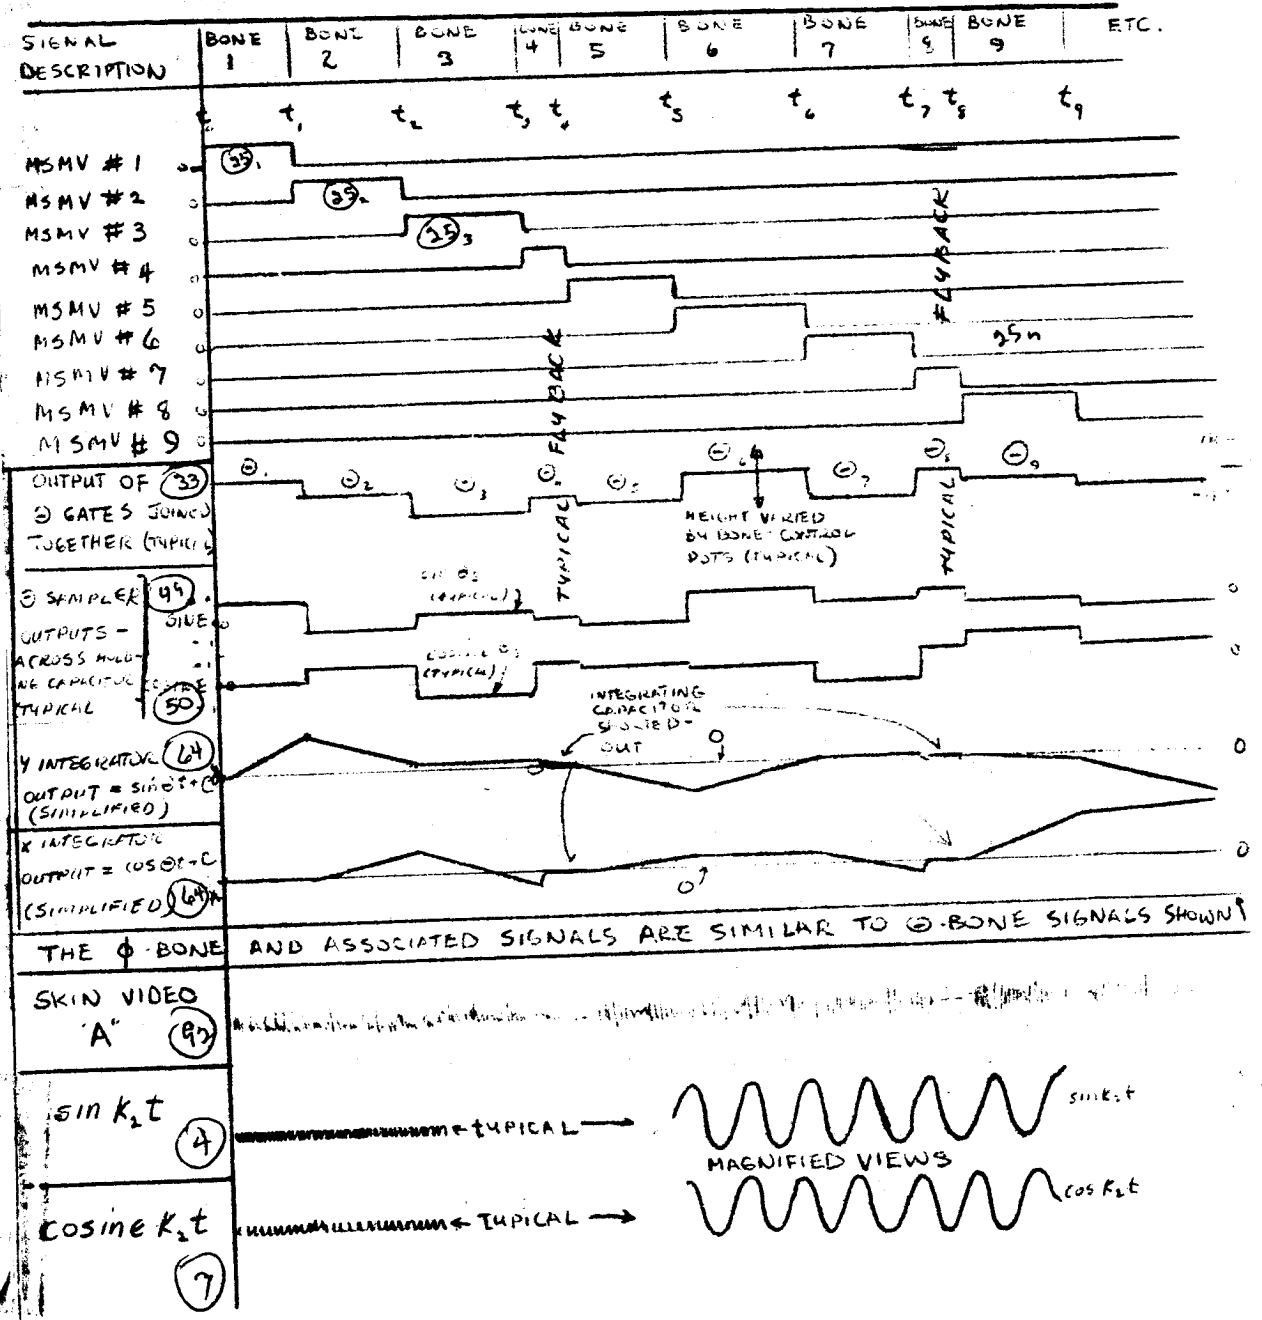 SIGNAL DESCRIPTION
BONE 1
BONE 2
BONE 3
BONE 4
BONE 5
BONE 6
BONE 7
BONE 8
BONE 9
ETC.
t₁ t₂ t₃ t₄ t₅ t₆ t₇ t₈ t₉
MSMV # 1
25₁
MSMV # 2
25₂
MSMV # 3
25₃
MSMV # 4
MSMV # 5
MSMV # 6
25n
MSMV # 7
MSMV # 8
MSMV # 9
TYPICAL FLYBACK
TYPICAL FLYBACK
OUTPUT OF 33
Θ GATES JOINED
TOGETHER (TYPICAL)
Θ₁ Θ₂ Θ₃ Θ₅ Θ₆ Θ₇ Θ₈ Θ₉
HEIGHT VARIED
BY BONE CONTROL
POTS (TYPICAL)
Θ SAMPLER 49
SINE 0
OUTPUTS -
ACROSS HOLD-
ING CAPACITOR COSINE
TYPICAL 50
SIN Θ₃
(TYPICAL)
COSINE Θ₃
(TYPICAL)
0
0
INTEGRATING
CAPACITOR
SHORTED-
OUT
Y INTEGRATOR 64
OUTPUT = sin Θt+C
(SIMPLIFIED)
0
0
X INTEGRATOR
OUTPUT = COS Θt+C
(SIMPLIFIED) 64
0
0
THE ϕ-BONE AND ASSOCIATED SIGNALS ARE SIMILAR TO Θ-BONE SIGNALS SHOWN
SKIN VIDEO
"A" 92
sin K₂t
4
← TYPICAL →
sin K₂t
MAGNIFIED VIEWS
cosine K₂t
7
← TYPICAL →
cos K₂t